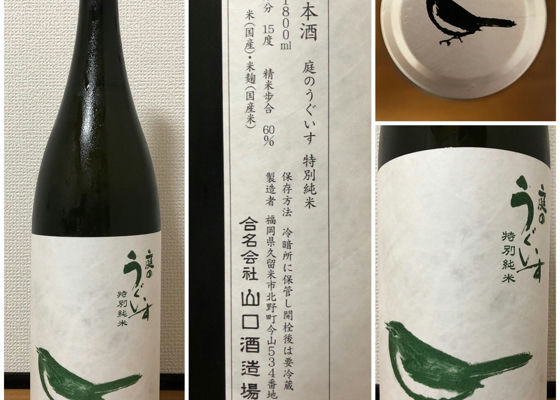 庭の
うぐいす
特別純米
本酒 庭のうぐいす 特別純米
1800ml
分 15度 精米歩合 60%
米(国産)・米麹(国産米)
保存方法 冷暗所に保管し開栓後は要冷蔵
製造者 福岡県久留米市北野町今山534番地
合名会社 山口酒造場
庭の
うぐいす
特別純米